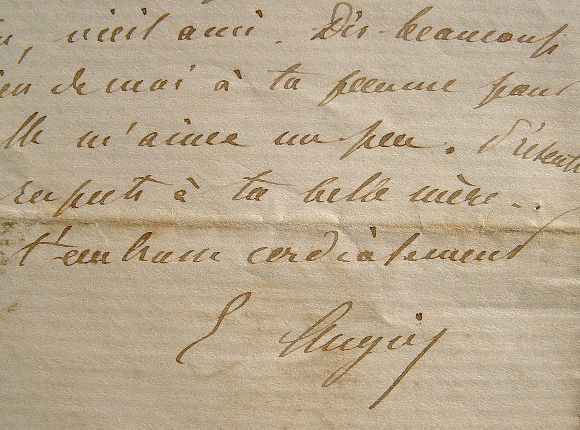 vieil ami. Dis beaucoup
de moi à ta femme pour
m'aime un peu. Présente
respects à ta belle mère..
t'embrasse cordialement
E Augier